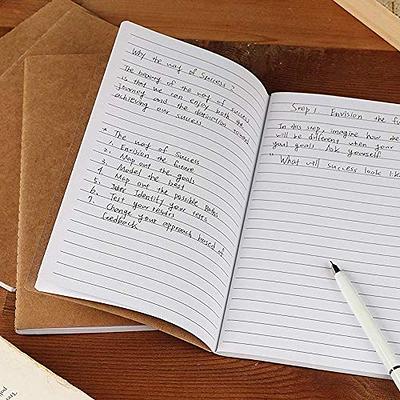 Why the way of Success?
The beauty of the way of success
is that we can enjoy both the
journey and the destination toward
achieving our success
* The way of Success
1. Envision the future
2. Map out the goals
3. Model the best
4. Map out the possible paths
5. Identify your
6. Test your
7. Change your approach based on
feedback
Step 1 Envision the fu
In this step, imagine how the
will be different when your
goals Ask yourself
"What will success look like